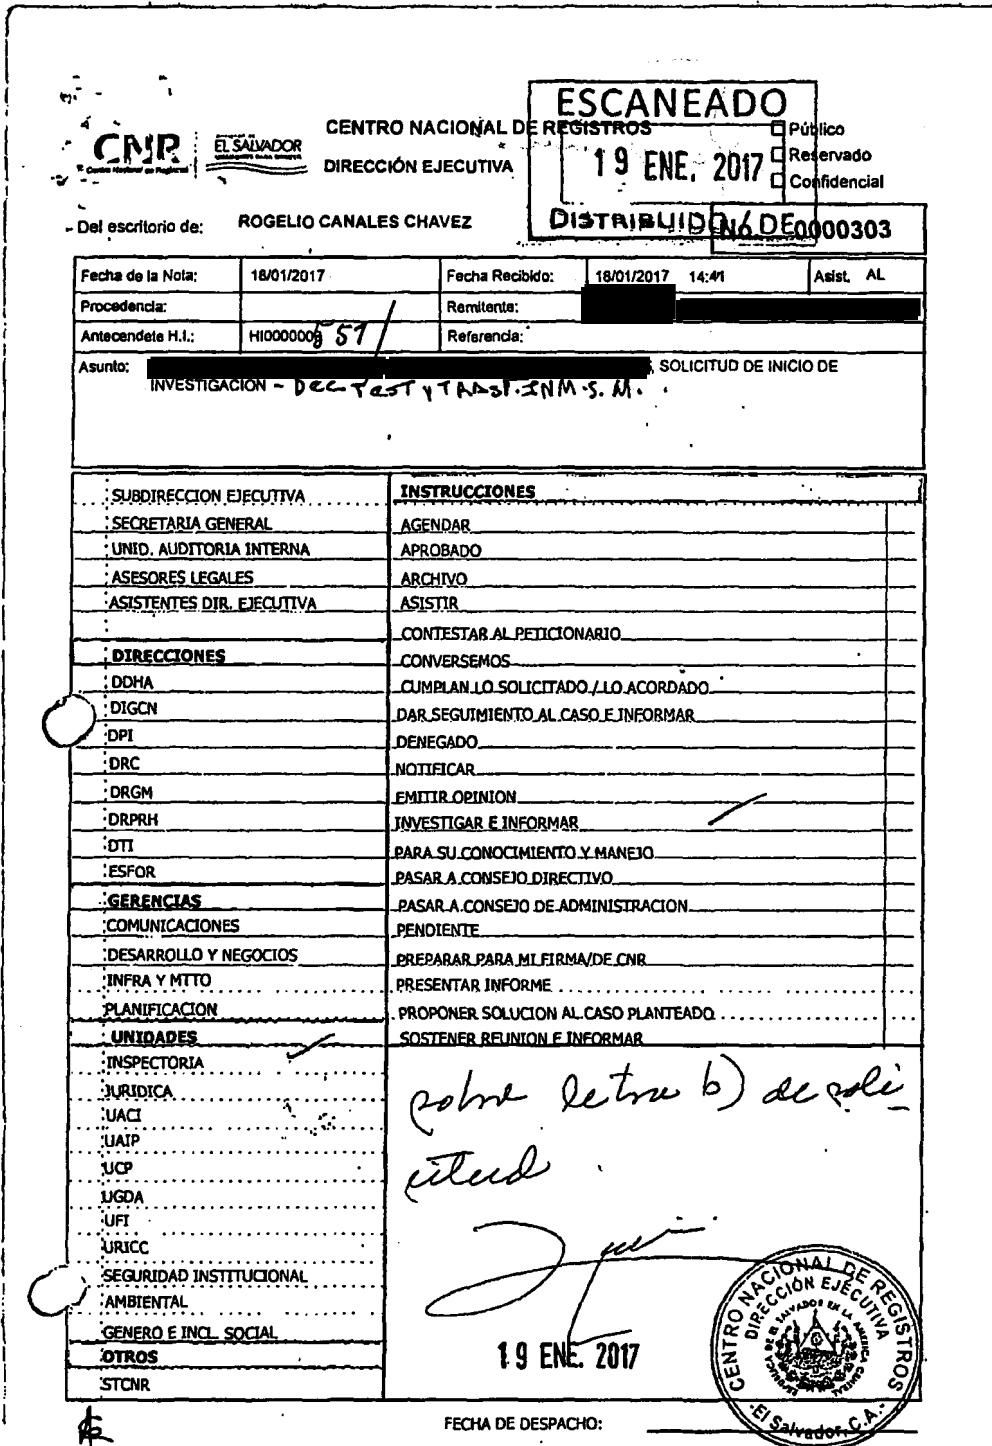 ESCANEADO
CNR
Centro Nacional de Registros
EL SALVADOR
CENTRO NACIONAL DE REGISTROS
Público
DIRECCIÓN EJECUTIVA
19 ENE. 2017
Reservado
Confidencial
Del escritorio de: ROGELIO CANALES CHAVEZ
DISTRIBUIDO No. DE0000303
Fecha de la Nota: 18/01/2017 Fecha Recibido: 18/01/2017 14:41 Asist. AL
Procedencia: Remitente:
Antecendete H.I.: 551 Referencia:
Asunto: SOLICITUD DE INICIO DE
INVESTIGACION - DEC. TEST y TRASP. INM. S. M.
SUBDIRECCION EJECUTIVA
SECRETARIA GENERAL
UNID. AUDITORIA INTERNA
ASESORES LEGALES
ASISTENTES DIR. EJECUTIVA
DIRECCIONES
DDHA
DIGCN
DPI
DRC
DRGM
DRPRH
DTI
ESFOR
GERENCIAS
COMUNICACIONES
DESARROLLO Y NEGOCIOS
INFRA Y MTTO
PLANIFICACION
UNIDADES
INSPECTORIA
JURIDICA
UACI
UAIP
UCP
UGDA
UFI
URICC
SEGURIDAD INSTITUCIONAL
AMBIENTAL
GENERO E INCL. SOCIAL
OTROS
STCNR
INSTRUCCIONES
AGENDAR
APROBADO
ARCHIVO
ASISTIR
CONTESTAR AL PETICIONARIO
CONVERSEMOS
CUMPLAN LO SOLICITADO / LO ACORDADO
DAR SEGUIMIENTO AL CASO E INFORMAR
DENEGADO
NOTIFICAR
EMITIR OPINION
INVESTIGAR E INFORMAR
PARA SU CONOCIMIENTO Y MANEJO
PASAR A CONSEJO DIRECTIVO
PASAR A CONSEJO DE ADMINISTRACION
PENDIENTE
PREPARAR PARA MI FIRMA/DE CNR
PRESENTAR INFORME
PROPONER SOLUCION AL CASO PLANTEADO
SOSTENER REUNION E INFORMAR
sobre letra b) de soli
citud
19 ENE. 2017
CENTRO NACIONAL DE REGISTROS
DIRECCIÓN EJECUTIVA
REPUBLICA DE EL SALVADOR EN LA AMERICA CENTRAL
El Salvador, C.A.
FECHA DE DESPACHO: